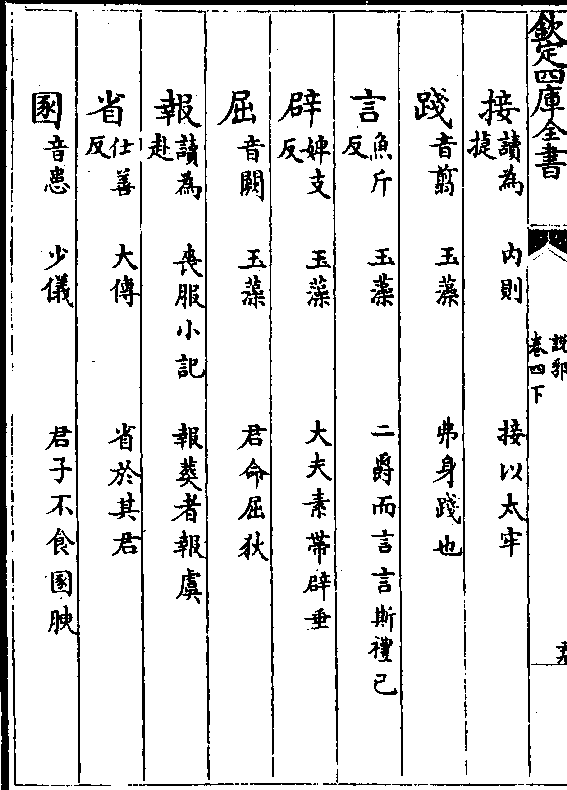 欽定四庫全書
說郛
卷四下
接 讀為捷 內則 接以太牢
踐 音翦 玉藻 弗身踐也
言 魚斤反 玉藻 二爵而言言斯禮已
辟 婢支反 玉藻 大夫素帶辟垂
屈 音闕 玉藻 君命屈狄
報 讀為赴 喪服小記 報葬者報虞
省 仕善反 大傳 省於其君
圂 音患 少儀 君子不食圂腴